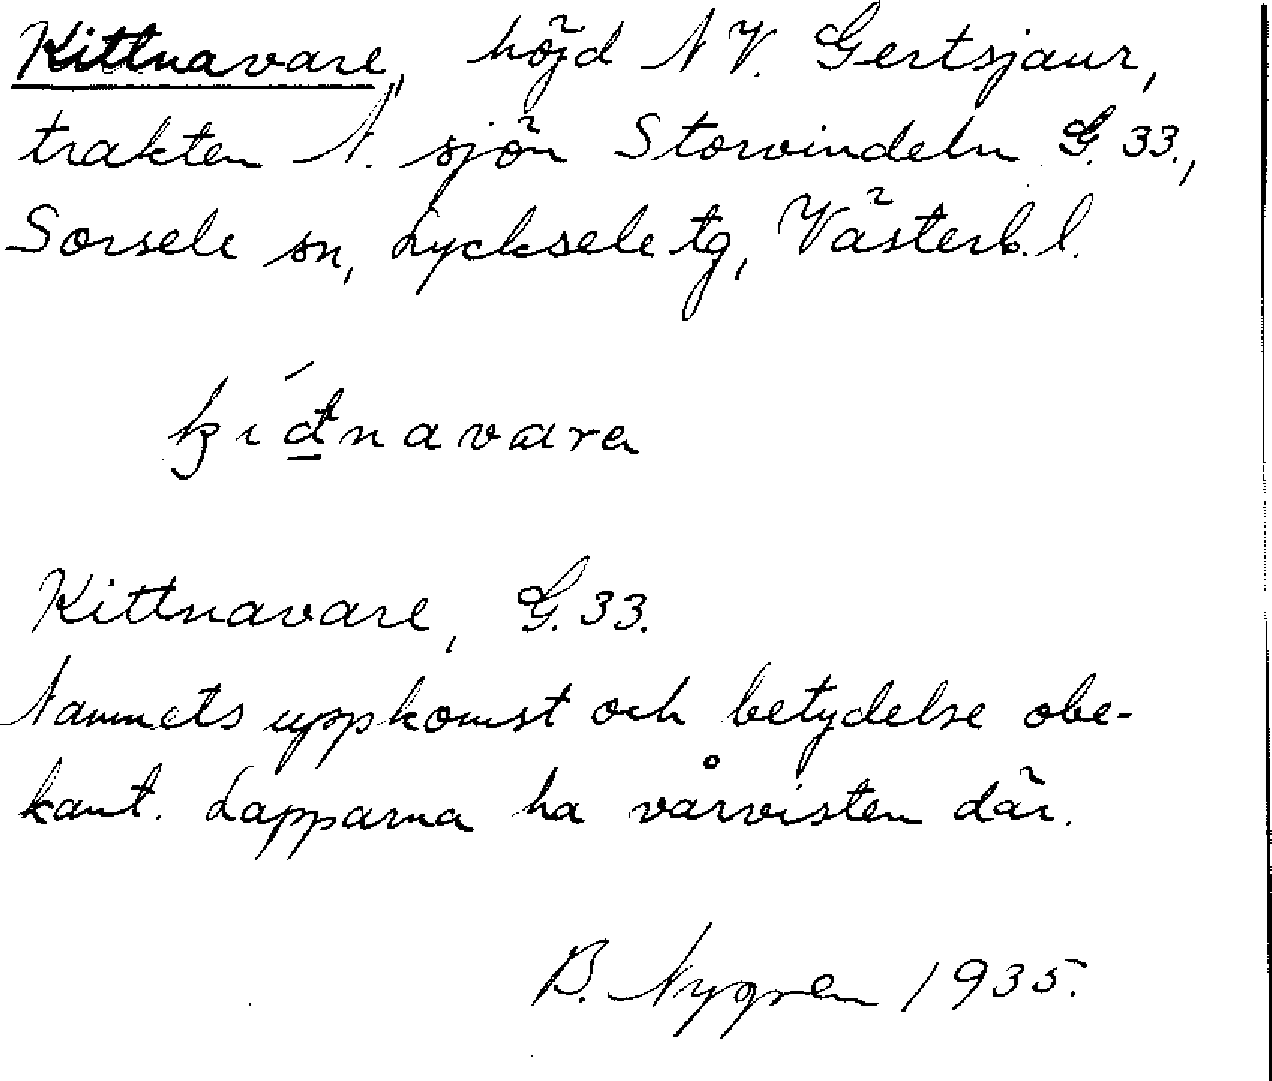 Kittnavare, höjd NV. Gertsjaur,
trakten N. sjön Storvindeln G. 33.,
Sorsele sn, Lycksele tg, Västerb. l.
kíd̲navarea
Kittnavare, G. 33.
Namnets uppkomst och betydelse obe-
kant. Lapparna ha vårvisten där.
B. Nygren 1935.